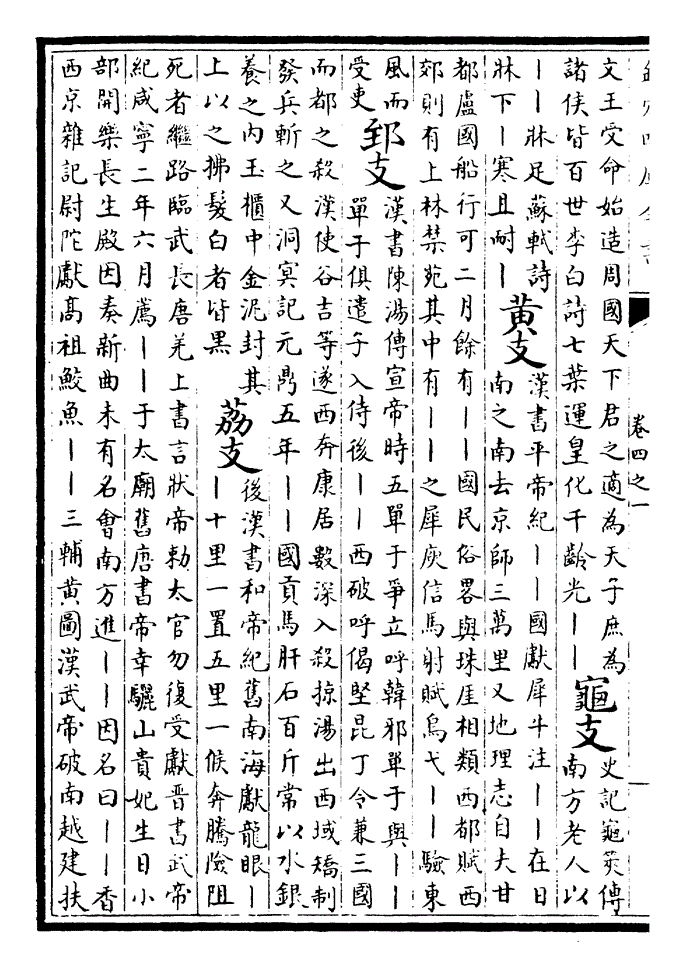 卷四之一
文王受命始造周國天下君之適為天子庶為
諸侯皆百世李白詩七葉運皇化千齡光丨丨
龜支
史記龜筴傳
南方老人以
丨丨牀足蘇軾詩
牀下丨寒且耐丨
黃支
漢書平帝紀丨丨國獻犀牛注丨丨在日
南之南去京師三萬里又地理志自夫甘
都盧國船行可二月餘有丨丨國民俗畧與珠厓相類西都賦西
郊則有上林禁苑其中有丨丨之犀庾信馬射賦烏弋丨丨驗東
風而
受吏
郅支
漢書陳湯傳宣帝時五單于爭立呼韓邪單于與丨丨
單于俱遣子入侍後丨丨西破呼偈堅昆丁令兼三國
而都之殺漢使谷吉等遂西奔康居數深入殺掠湯出西域矯制
發兵斬之又洞冥記元鼎五年丨丨國貢馬肝石百斤常以水銀
養之内玉櫃中金泥封其
上以之拂髮白者皆黑
荔支
後漢書和帝紀舊南海獻龍眼丨
丨十里一置五里一候奔騰險阻
死者繼路臨武長唐羌上書言狀帝勑太官勿復受獻晉書武帝
紀咸寧二年六月薦丨丨于太廟舊唐書帝幸驪山貴妃生日小
部開樂長生殿因奏新曲未有名會南方進丨丨因名曰丨丨香
西京雜記尉陀獻高祖鮫魚丨丨三輔黃圖漢武帝破南越建扶